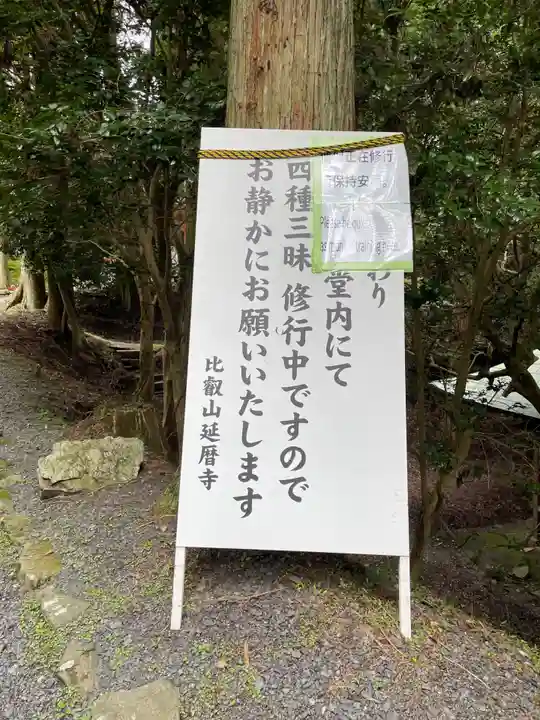 わり
堂内にて
四種三昧修行中ですので
お静かにお願いいたします
比叡山延暦寺
正在修行
保持安
。
Please be quiet
as monk training